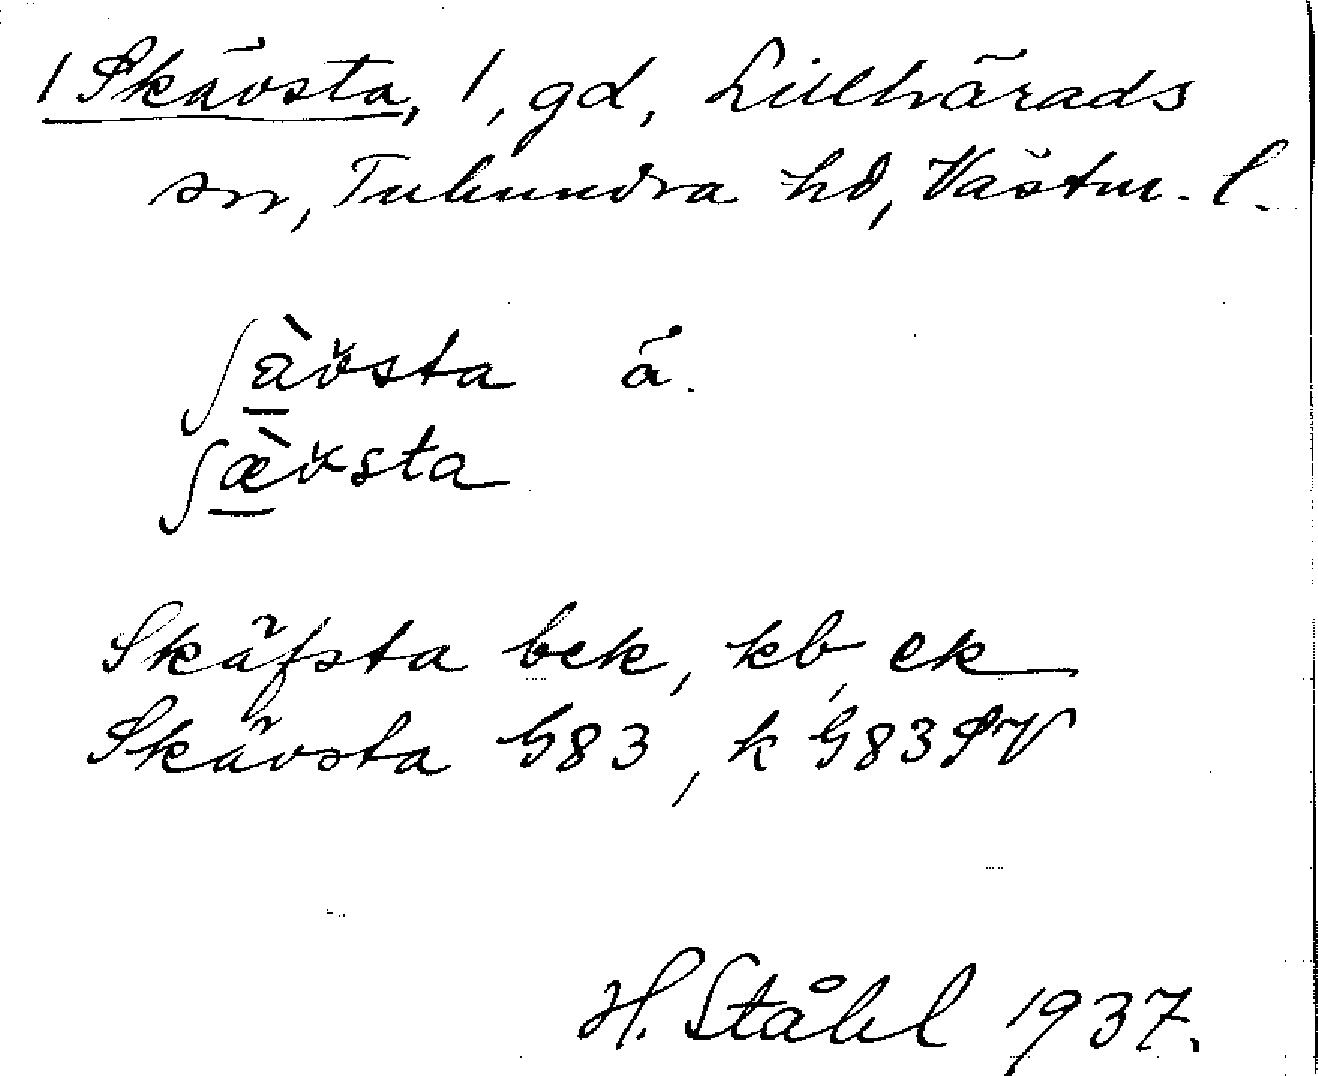 1 Skävsta, 1, gd, Lillhärads
sn, Tuhundra hd, Västm. l.
ʃàvsta ä.
ʃæ̀vsta
Skäfsta bek, kb, ek
Skävsta G83, k G83SV
H. Ståhl 1937.